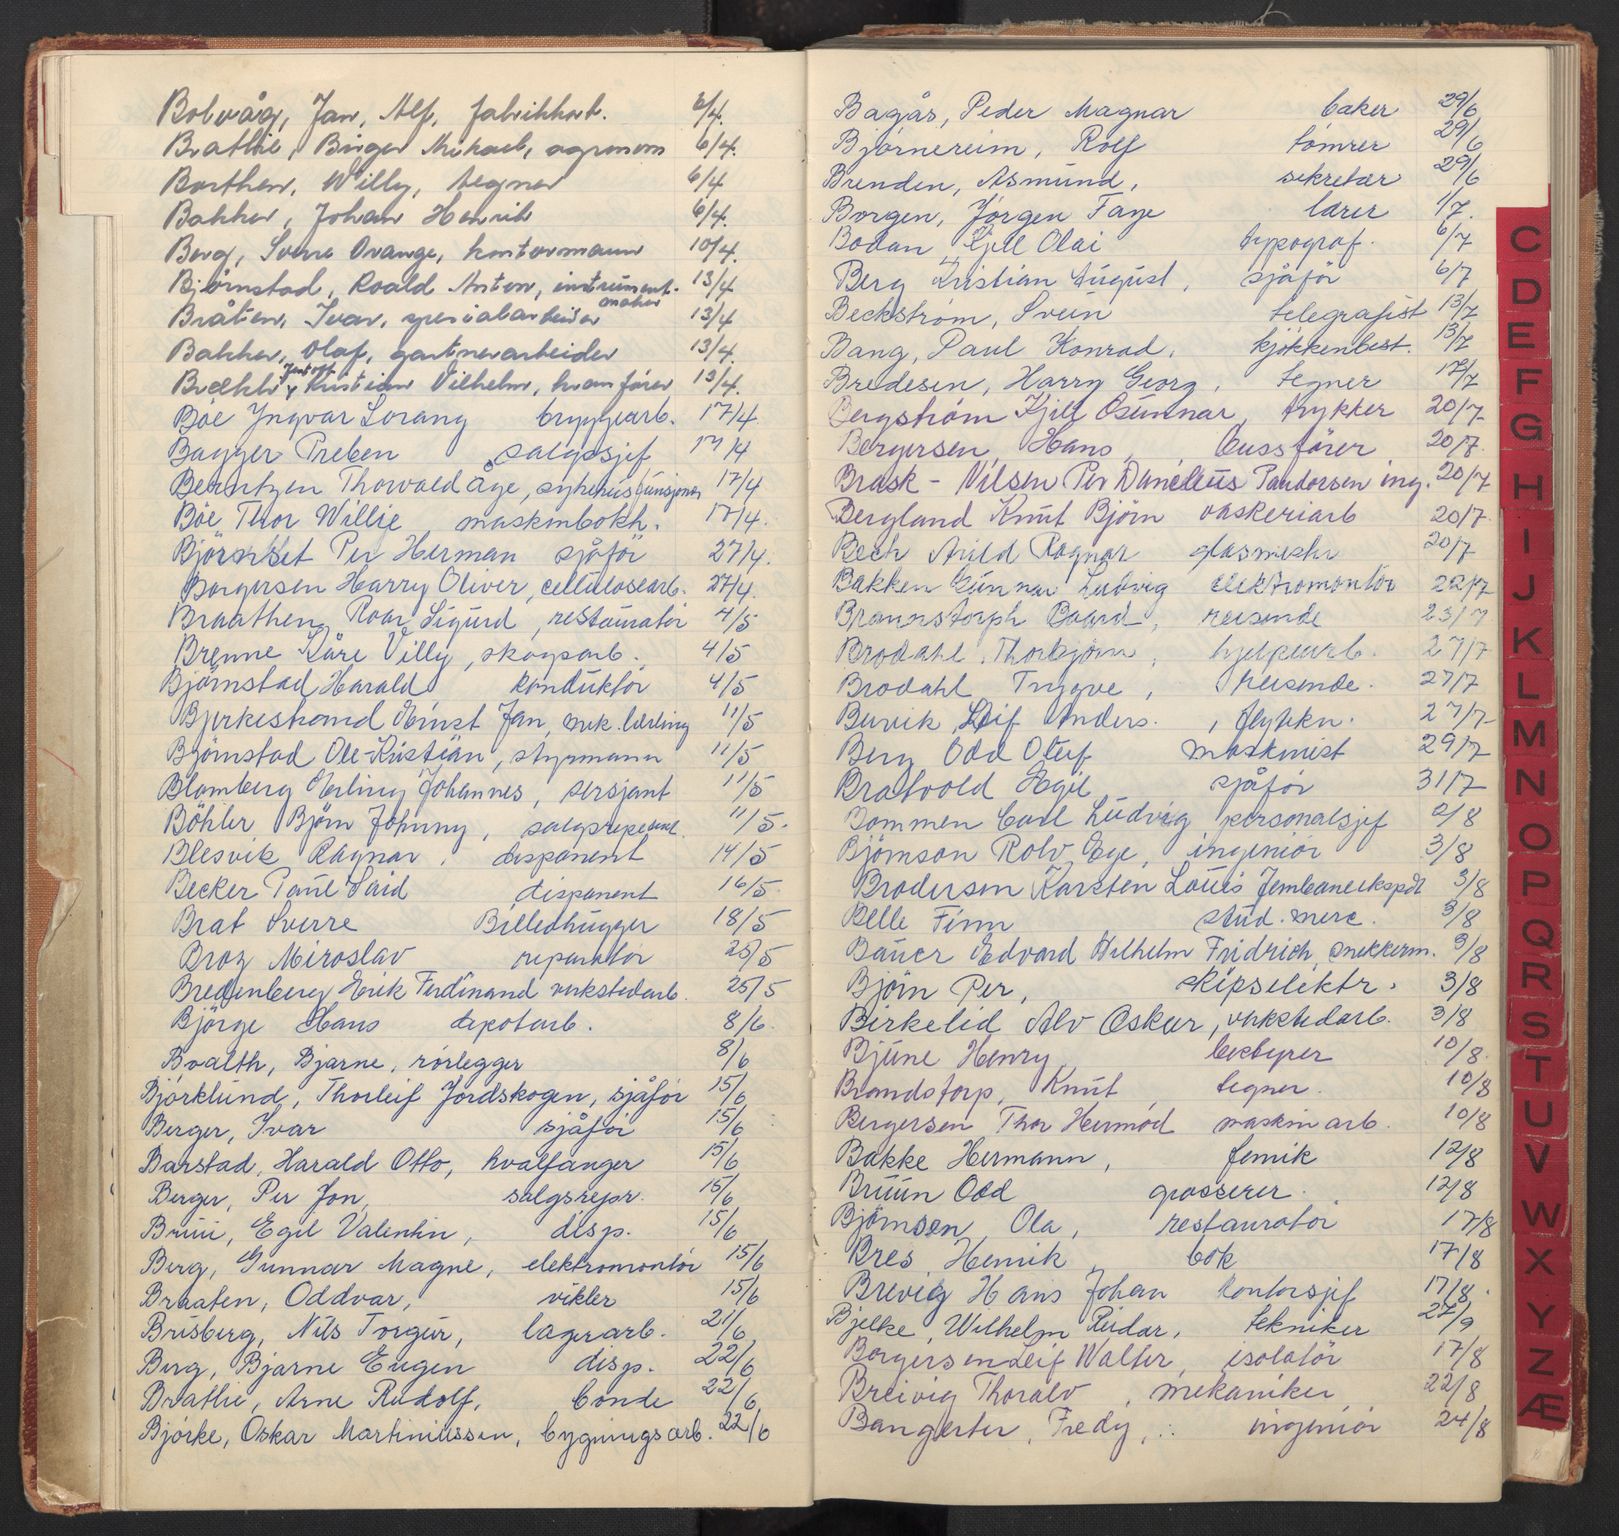 Bolvåg, Jan, Alf, fabrikkarb. 6/4.
Brathie, Birger Mikael, agronom 6/4.
Borthen, Willy, tegner 6/4
Bakker, Johan Henrik 6/4.
Berg, Sverre Orange, kontormann 10/4.
Bjørnstad, Roald Anton, instrument- 13/4
maker
Bråten, Ivar, spesialarbeider 13/4
Bakken, Olaf, gartnerarbeider 13/4.
Kristian Vilhelm, kranfører 13/4.
Böe Yngvar Lorang bryggearb. 17/4
Bagger Preben salgssjef 17/4
Berntzen Thorvald Åge, sykehusfunksjonær 17/4
Böe Thor Willie maskinbokh. 17/4.
Per Herman sjåför 27/4.
Borgersen Harry Oliver, cellulosearb. 27/4.
Braathen Roar Sigurd, restauratör 4/5
Brenne Kåre Villy, skogsarb. 4/5
Björnstad Harald konduktör 4/5
Bjerkestrand Ernst Jan, mek. lærling 11/5
Björnstad Ole-Kristian, styrmann 11/5
Blomberg Erling Johannes, sersjant 11/5
Böhler Björn Johnny, salgsrepresent. 11/5.
Blesvik Ragnar, disponent 14/5
Becker Paul Said disponent 16/5.
Brat Sverre Billedhugger 18/5
Broz Miroslav reparatör 25/5
Bredenberg Erik Ferdinand verkstedarb. 25/5
Björge Hans depotarb. 8/6.
Bvalth, Bjarne, rörlegger 8/6
Björklund, Thorleif Jordskogen, sjåför 15/6
Berger, Ivar sjåför 15/6
Barstad, Harald Otto, hvalfanger 15/6
Berger, Per Jon, salgsrepr. 15/6
Bruu, Egil Valentin, disp. 15/6
Berg, Gunnar Magne, elektromontör 15/6
Braaten, Oddvar, vikler 15/6
Brisberg, Nils Torgur, lagerarb. 21/6
Berg, Bjarne Eugen disp. 22/6
Brathie, Arne Rudolf, bonde 22/6
Björke, Oskar Martiniussen, bygningsarb. 22/6
Bagås, Peder Magnar baker 29/6
Björnereim, Rolf tömrer 29/6
Brenden, Asmund, sekretær 29/6
Borgen, Jörgen Faye lærer 1/7.
Bodan Kjell Olai typograf. 6/7
Berg Kristian August, sjåför 6/7
Beckström, Svein telegrafist 13/7
Bang, Paul Konrad, kjökkenbest. 13/7
Bredesen, Harry Georg, tegner 17/7
Bergström Kjell Gunnar, trykker 20/7
Bergersen, Hans, bussförer, 20/7.
Brask - Nilsen Per Danelius Pandorsen ing. 20/7
Bergland Knut Björn vaskeriarb 20/7.
Bech Arild Ragnar glasmester 20/7
Bakken Gunnar Ludvig elektromontör 22/7
Braunstorph Baard, reisende 23/7
Brodahl, Thorbjörn, hjelpearb. 27/7
Brodahl Tryggve, reisende. 27/7
Buvik Leif Anders., flytekn. 27/7
Berg Odd Oluf maskinist 29/7
Bratvold Egil sjåför 31/7
Bommen Carl Ludvig personalsjef 2/8
Björnson Rolv Ege, ingeniör 3/8
Brodersen Karsten Louis Jernbaneekspdt 3/8
Belle Finn stud. merc. 3/8
Bauer Edvard Wilhelm Fridrich, snekkerm. 3/8
Björn Per, skipselektr. 3/8
Birkelid Alv Oskar, verkstedarb. 3/8
Bjune Henry bestyrer 10/8.
Brandstorp, Knut, tegner. 10/8
Bergersen Thor Hermod maskinarb. 10/8
Bakke Hermann, fenrik 12/8
Bruun Odd grosserer. 12/8
Björnsen Ola, restauratör 17/8
Bres, Henrik, bok 17/8
Brevig Hans Johan kontorsjef 17/8.
Bjelke, Wilhelm Reidar, tekniker 27/9
Borgersen Leif Walter, isolatör 17/8
Breivig Thoralv, mekaniker 22/8
Bangerter, Fredy, ingeniör 24/8
C
D
E
F
G
H
I
J
K
L
M
N
O
P
Q
R
S
T
U
V
W
X
Y
Z
Æ